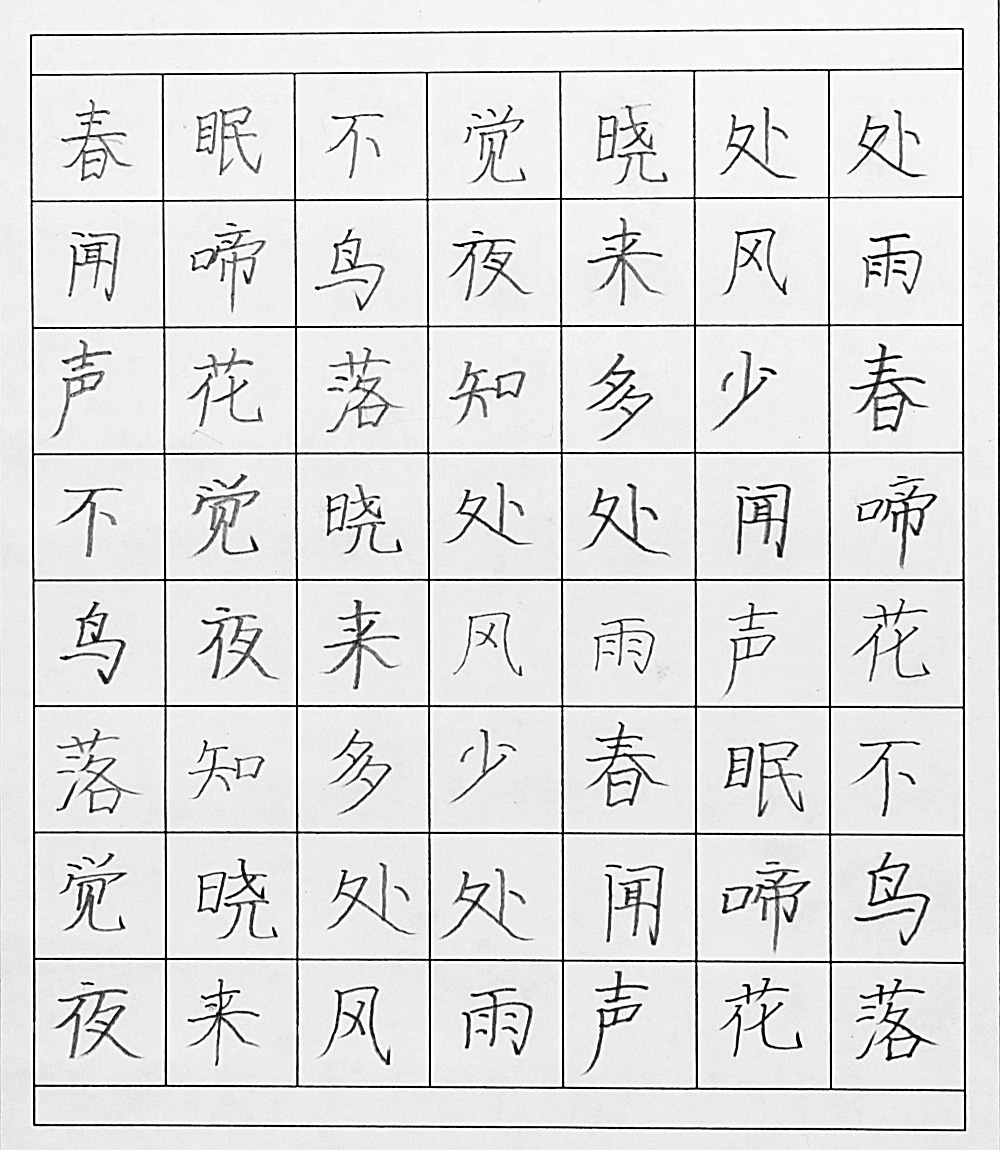 春眠不觉晓处处
闻啼鸟夜来风雨
声花落知多少春
不觉晓处处闻啼
鸟夜来风雨声花
落知多少春眠不
觉晓处处闻啼鸟
夜来风雨声花落